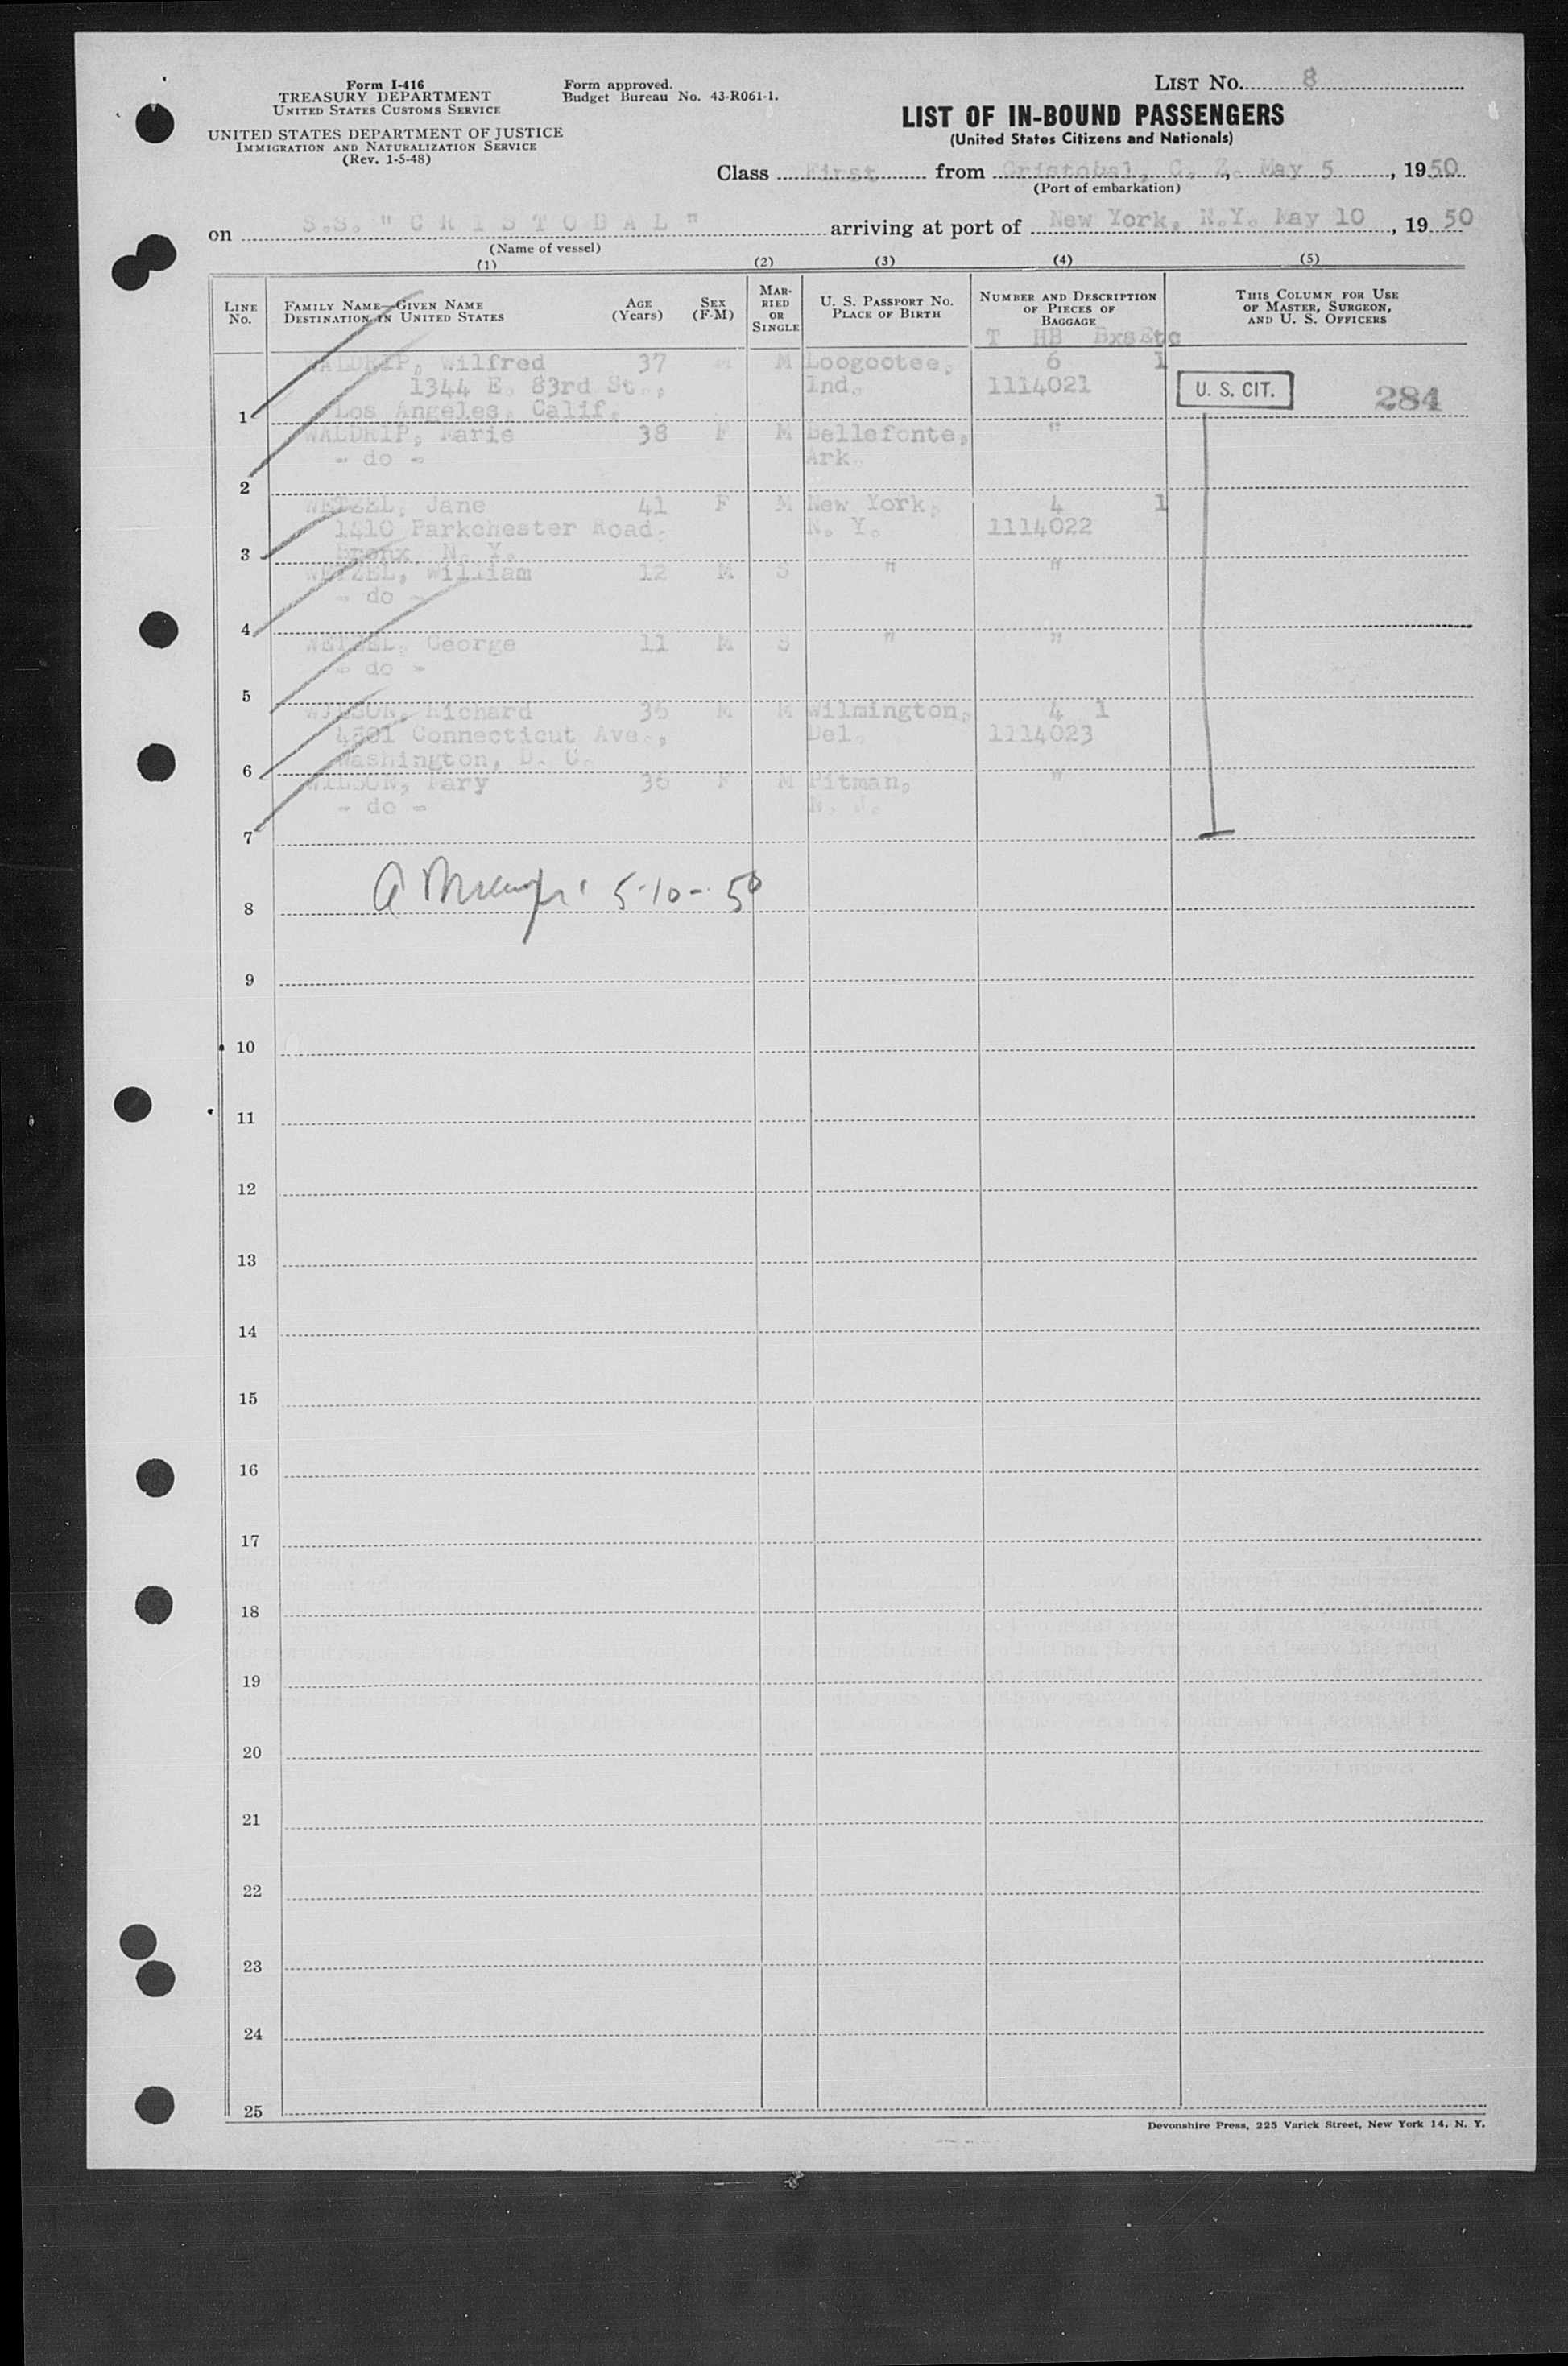 Form I-416
TREASURY DEPARTMENT
UNITED STATES CUSTOMS SERVICE
UNITED STATES DEPARTMENT OF JUSTICE
IMMIGRATION AND NATURALIZATION SERVICE
(Rev. 1-5-48)
Form approved.
Budget Bureau No. 43-R061-1.
LIST No. 8
LIST OF IN-BOUND PASSENGERS
(United States Citizens and Nationals)
Class First from Cristobal, C. Z. May 5, 1950
(Port of embarkation)
on S.S. "CRISTOBAL" arriving at port of New York, N.Y. May 10, 1950
(Name of vessel)
(1) (2) (3) (4) (5)
LINE No. FAMILY NAME—GIVEN NAME DESTINATION IN UNITED STATES AGE (Years) SEX (F-M) MARRIED OR SINGLE U. S. PASSPORT NO. PLACE OF BIRTH NUMBER AND DESCRIPTION OF PIECES OF BAGGAGE THIS COLUMN FOR USE OF MASTER, SURGEON, AND U. S. OFFICERS
T HB BxsEtc
WALDRIP, Wilfred 37 M M Loogootee, 6 1
1344 E. 83rd St., Ind. 1114021 U. S. CIT. 284
1 Los Angeles, Calif.
WALDRIP, Marie 38 F M Bellefonte, "
- do - Ark.
2
WETZEL, Jane 41 F M New York, 4 1
1410 Parkchester Road. N. Y. 1114022
3 Bronx, N. Y.
WETZEL, William 12 M S " "
- do -
4
WETZEL, George 11 M S " "
- do -
5
WILSON, Richard 36 M M Wilmington, 4 1
4801 Connecticut Ave., Del. 1114023
6 Washington, D. C.
WILSON, Mary 36 F M Pitman, "
- do - N. J.
7
8 5-10-50
9
10
11
12
13
14
15
16
17
18
19
20
21
22
23
24
25
Devonshire Press, 225 Varick Street, New York 14, N. Y.